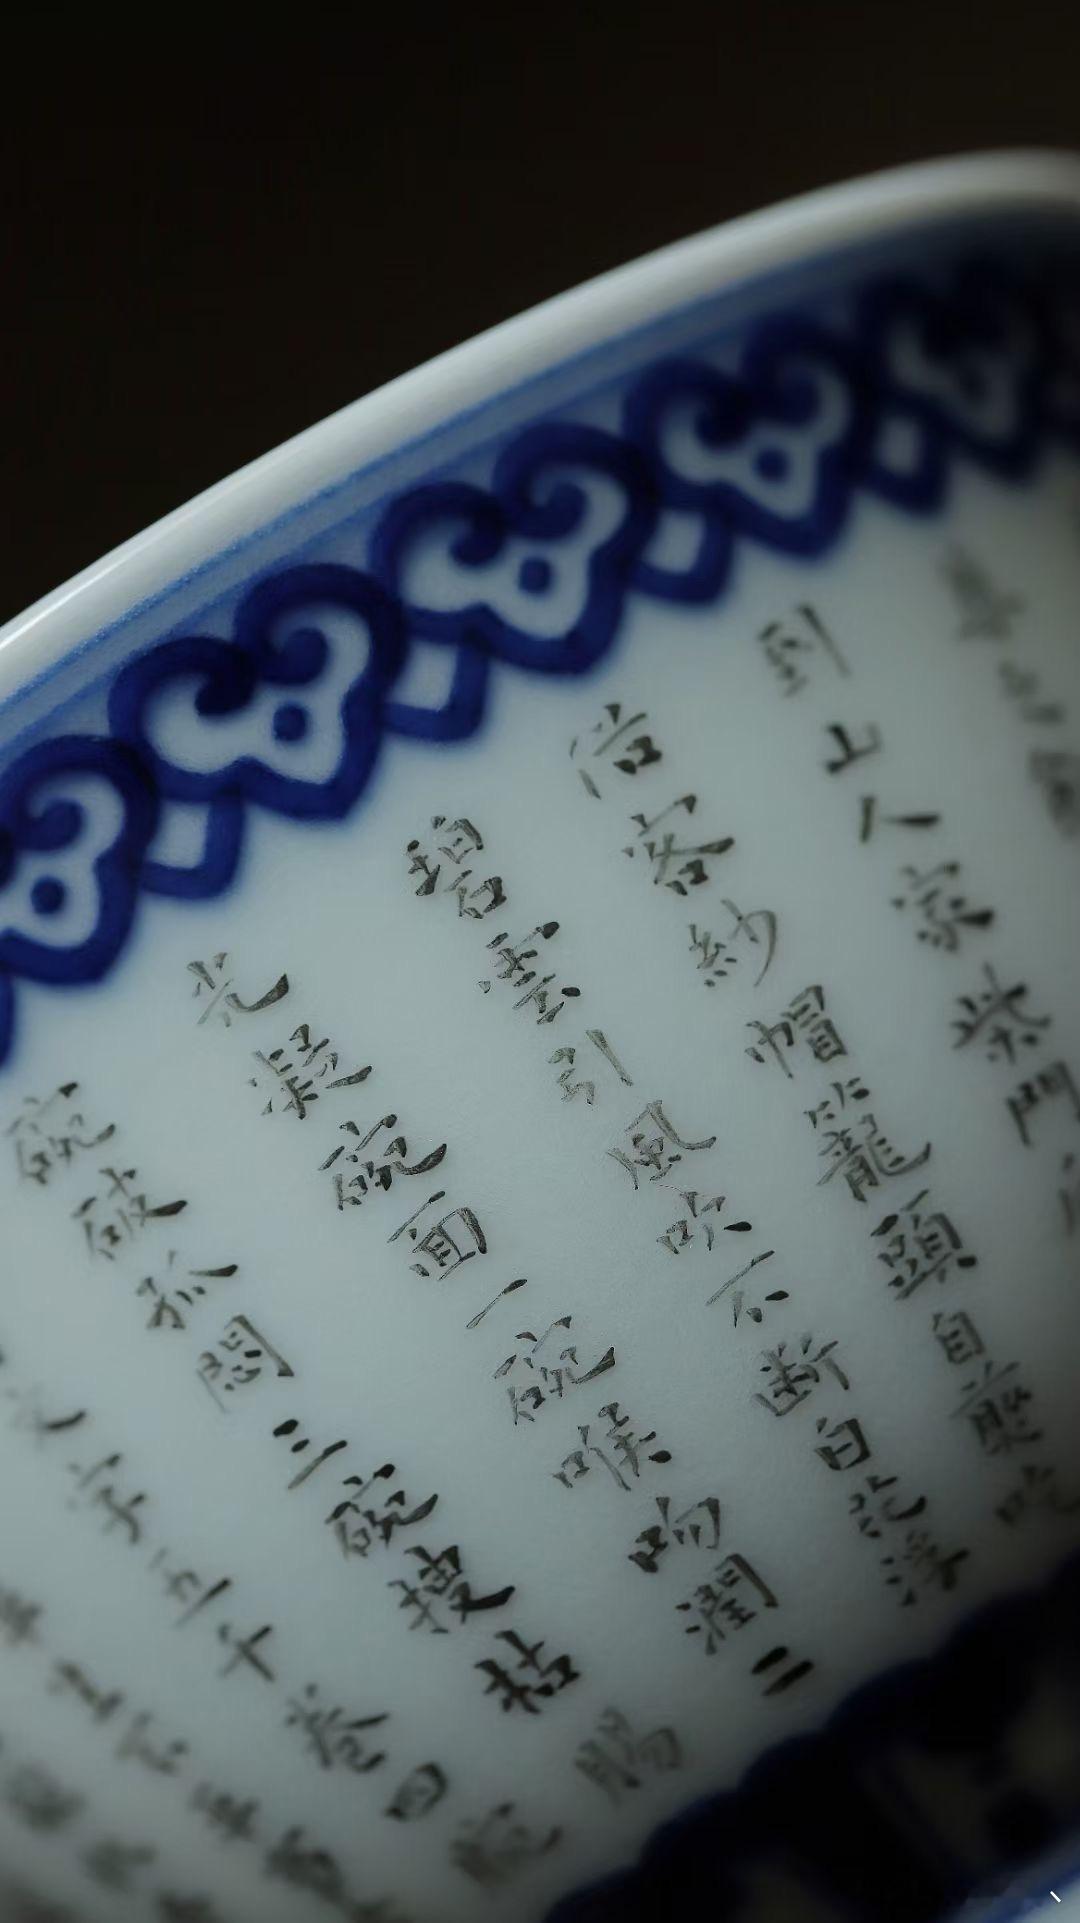 到山人家柴門
俗客紗帽籠頭自煎吃
碧雲引風吹不断白花浮
光凝碗面一碗喉吻潤二
碗破孤悶三碗搜枯腸
文字五千卷四碗